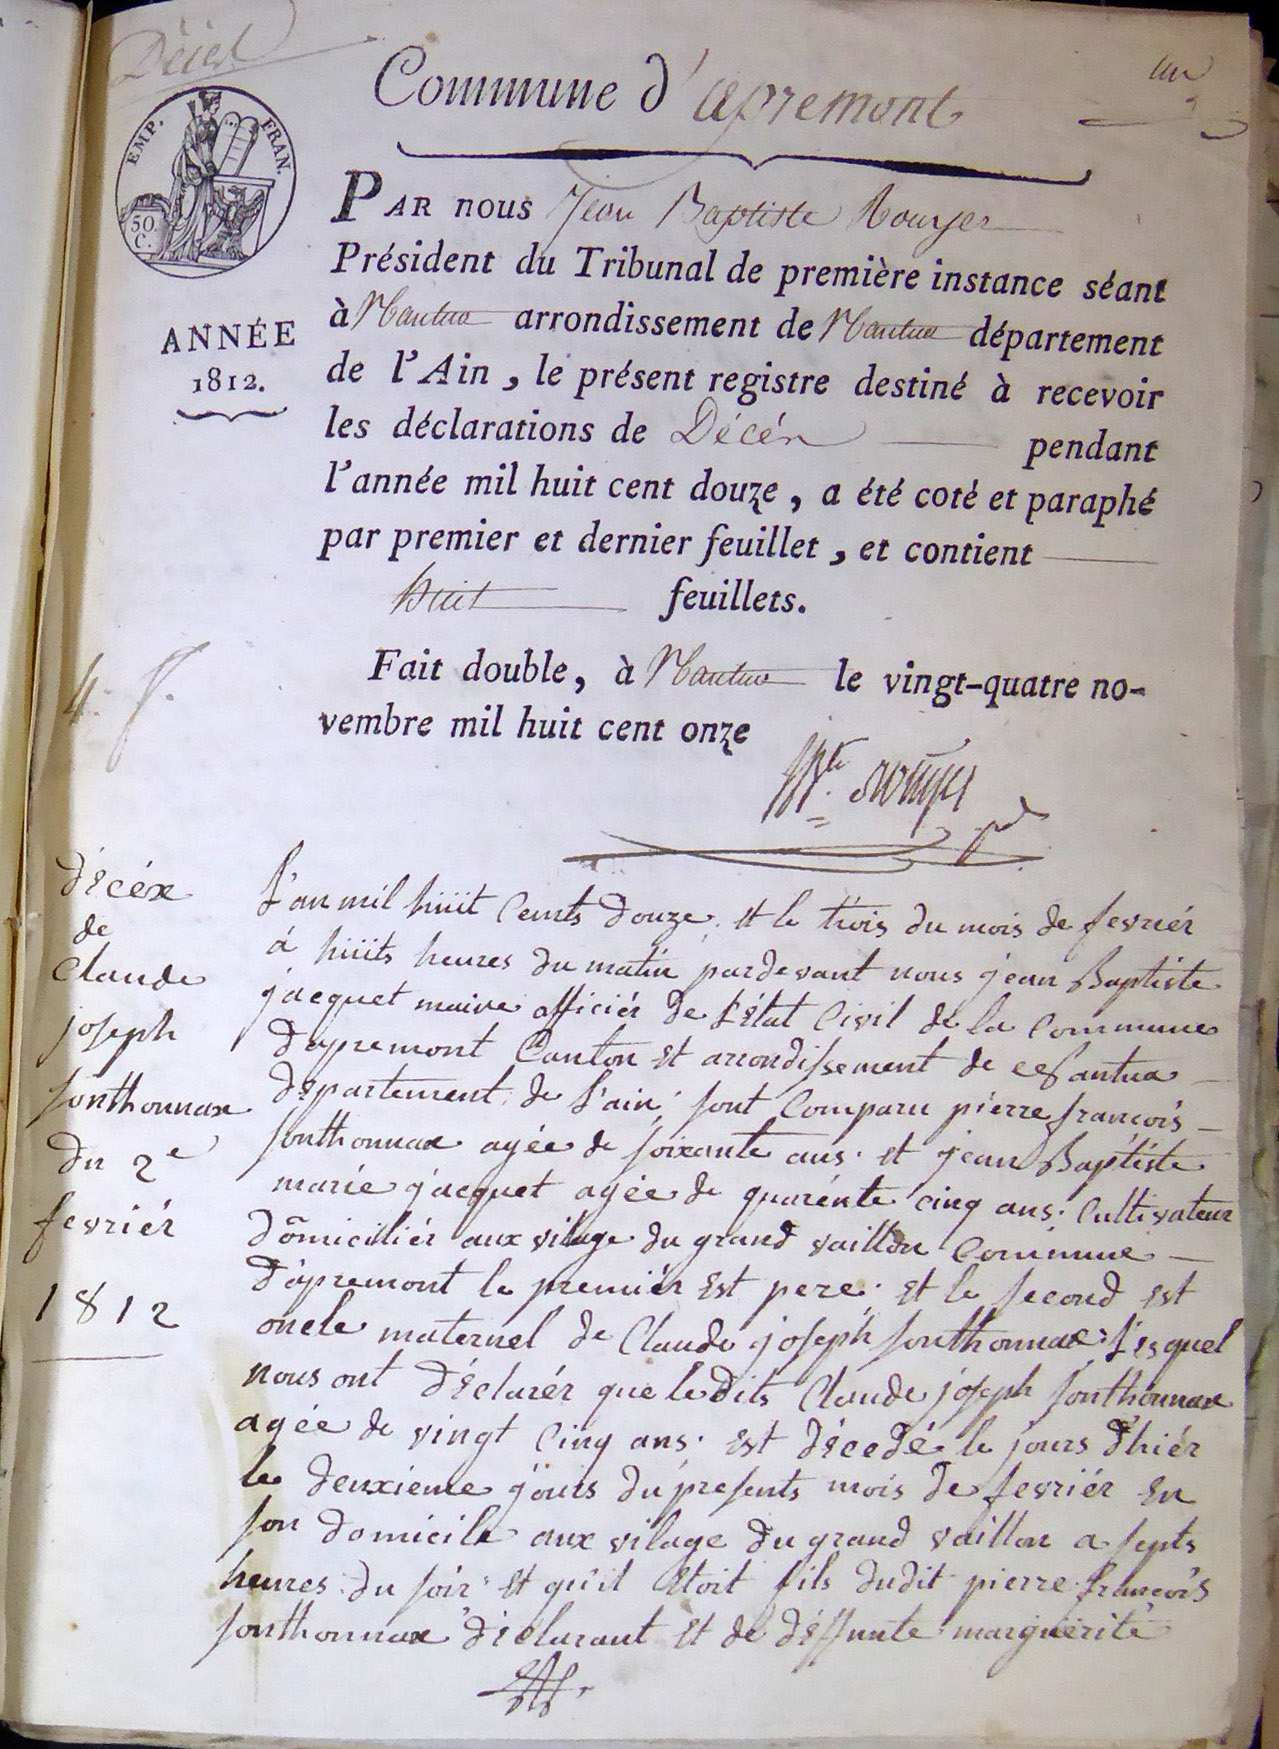 Décès
un
Commune d'apremont
EMP. FRAN.
50 C.
ANNÉE
1812.
PAR nous Jean Baptiste Rouyer
Président du Tribunal de première instance séant
à Nantua arrondissement de Nantua département
de l'Ain, le présent registre destiné à recevoir
les déclarations de Décès pendant
l'année mil huit cent douze, a été coté et paraphé
par premier et dernier feuillet, et contient
huit feuillets.
Fait double, à Nantua le vingt-quatre no-
vembre mil huit cent onze
décéx
de
Claude
joseph
sonthonnax
du 2e
fevriér
1812
L'an mil hüit Cents douze; et le trois du mois de fevriér
á hüits heures du matin pardevant nous jean Baptiste
jacquet maire officiér de l'état Civil de la Commune
dapremont Canton et arrondissement de Nantua
département de l'ain; sont Comparu pierre françois
sonthonnax agée de soixante ans. et jean Baptiste
marie jacquet agée de quarénte cinq ans; Cultivateur
domiciliér aux vilage du grand vaillon Commune
dapremont le premiér est pere. et le second est
oncle maternel de Claude joseph sonthonnax; lesquel
nous ont déclarér que ledits Claude joseph sonthonnax
agée de vingt Cinq ans. est décedé le jours d'hiér
le deuxieme jours du présents mois de fevriér en
son domicile aux vilage du grand vaillon a septs
heures du soir. et qu'il etoit fils dudit pierre françois
sonthonnax déclarant et de déffunte margueritte